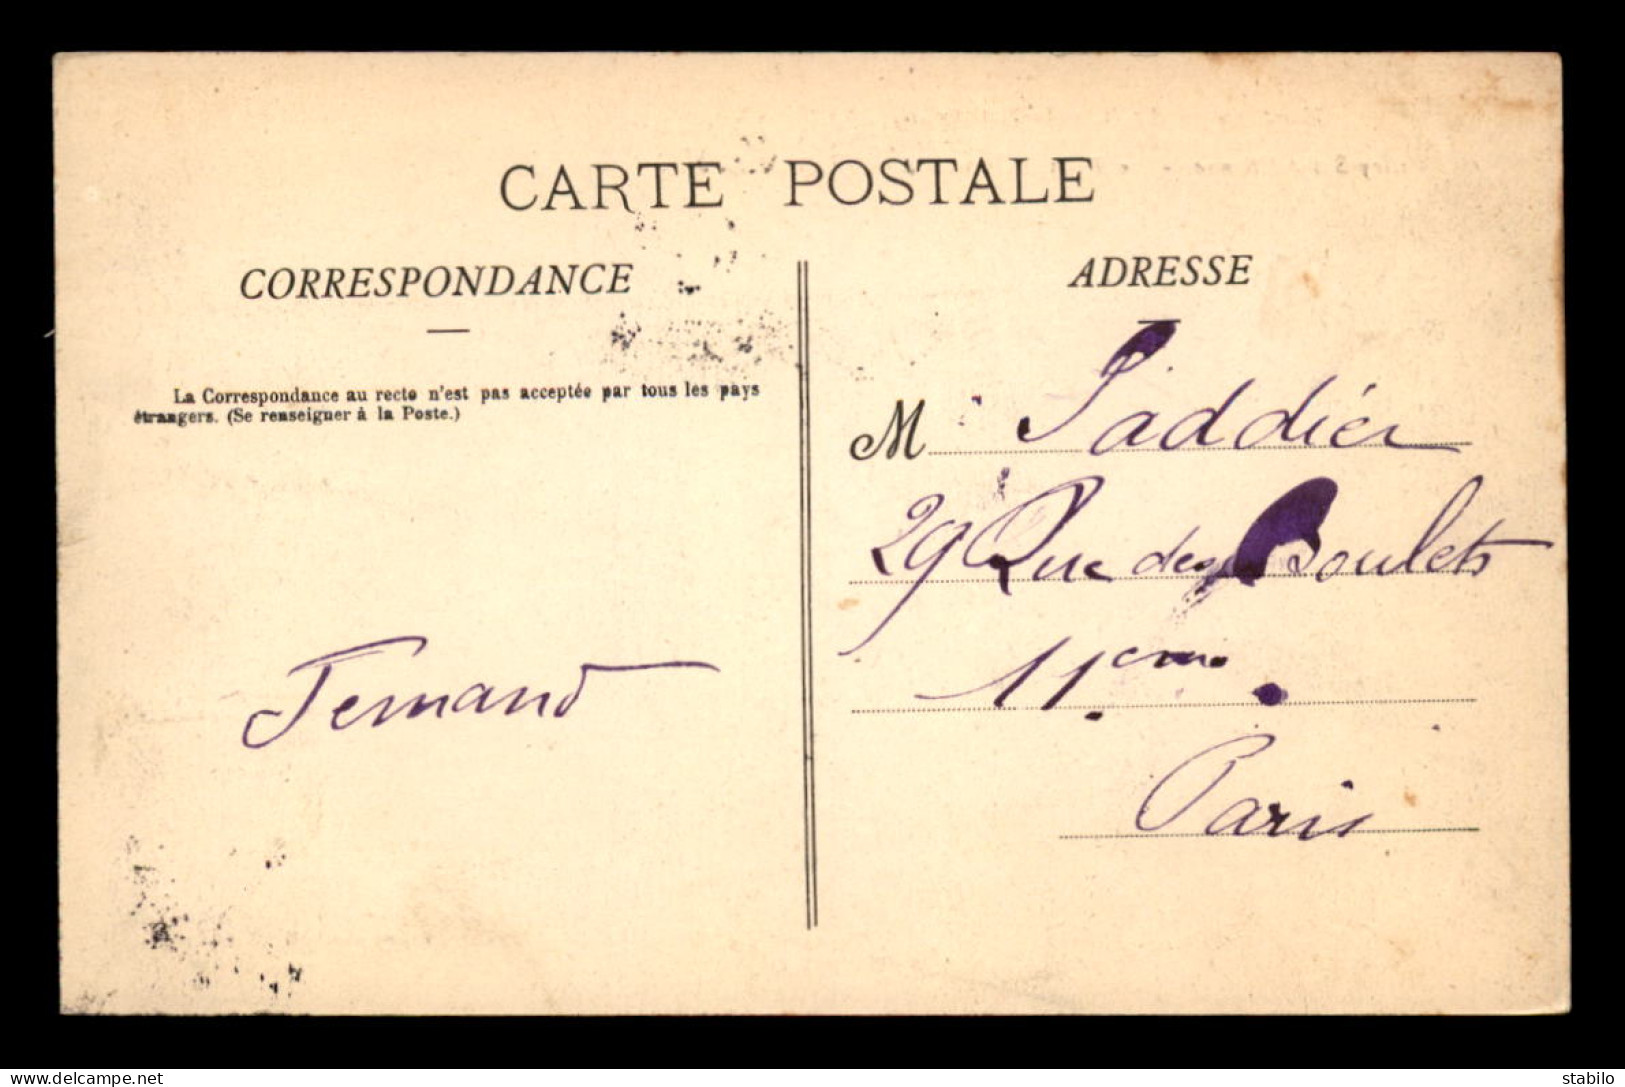 CARTE POSTALE
CORRESPONDANCE
La Correspondance au recto n'est pas acceptée par tous les pays
étrangers. (Se renseigner à la Poste.)
Fernand
ADRESSE
M Paddiér
29 Rue des Boulets
11em.
Paris
the-milkcow.com
stabilo